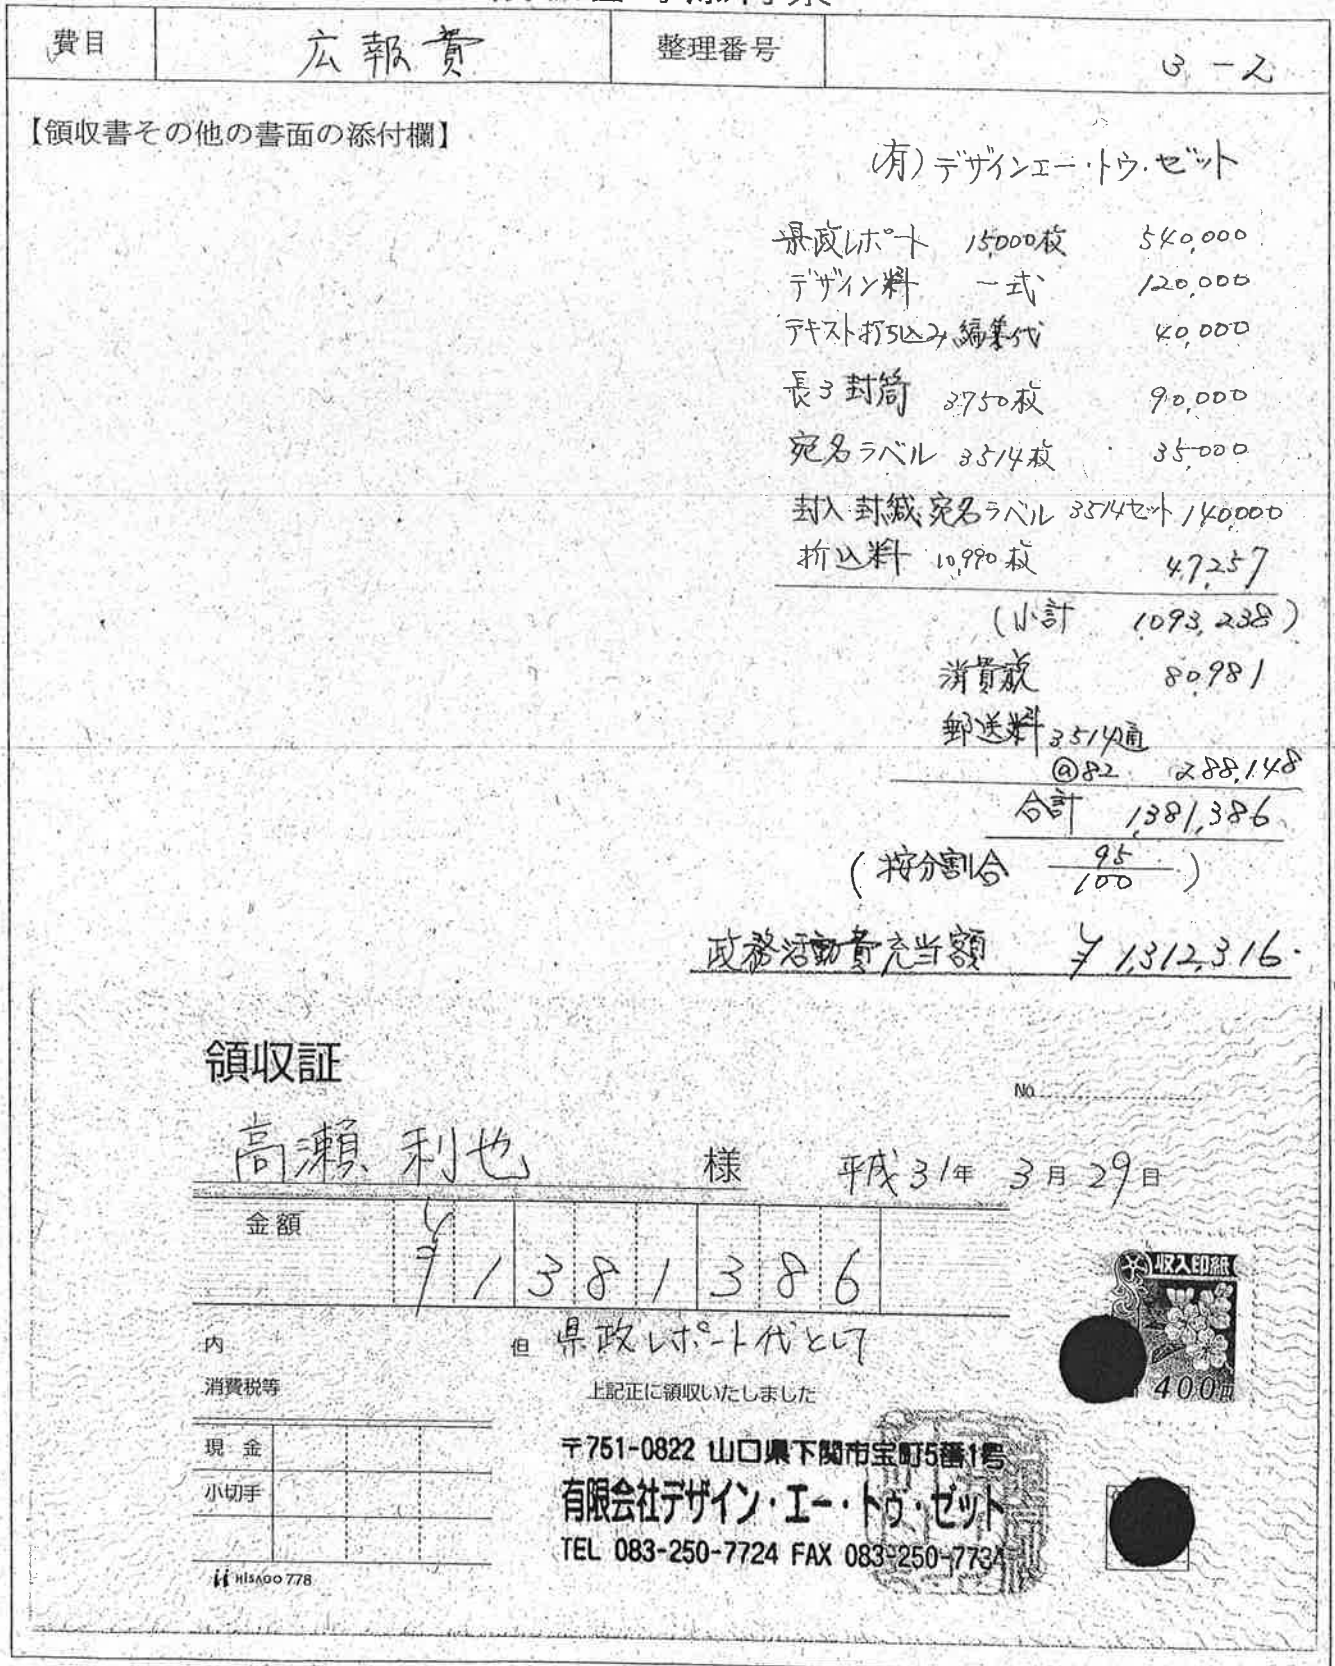 費目 広報費 整理番号 3-2
【領収書その他の書面の添付欄】
(有)デザインエー・トゥ・ゼット
県政レポート 15,000枚 540,000
デザイン料 一式 120,000
テキスト打ち込み、編集代 40,000
長3封筒 3750枚 90,000
宛名ラベル 3514枚 35,000
封入封緘、宛名ラベル 3514セット 140,000
折込料 10,990枚 47,257
(小計 1,093,238)
消費税 80,981
郵送料 3514通
@82 288,148
合計 1,381,386
(按分割合 95/100)
政務活動費充当額 ¥1,312,316.
領収証
No.
高瀬 利也 様 平成31年 3月29日
金額 ¥1381386
内 但 県政レポート代として
消費税等 上記正に領収いたしました
収入印紙
400円
現金
小切手
〒751-0822 山口県下関市宝町5番1号
有限会社デザイン・エー・トゥ・ゼット
TEL 083-250-7724 FAX 083-250-7734
HISAGO 778